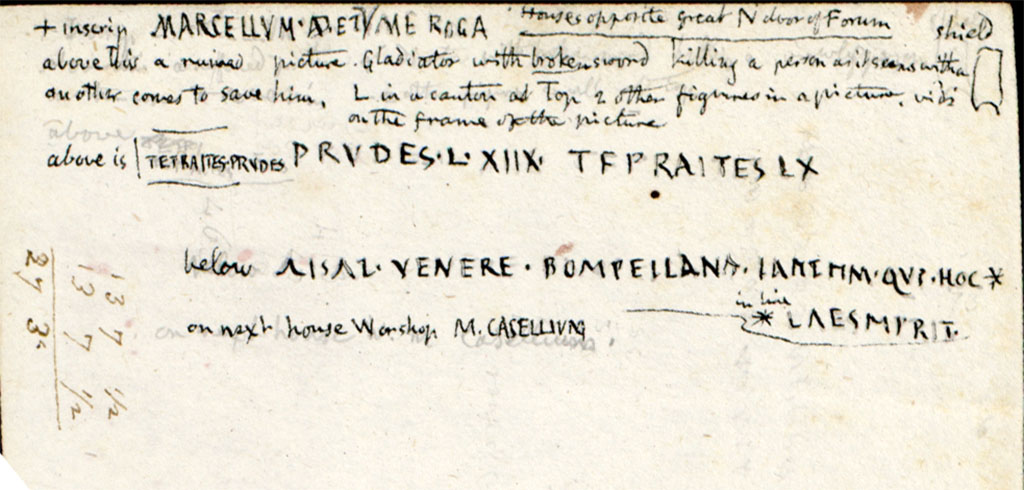 Houses opposite great N door of Forum
+ inscrip MARCELLVM · AETVM E ROGA shield
above this a ruined picture. Gladiator with broken sword killing a person as it seems with a
another comes to save him, L in a canton at Top 2 other figures in a picture, vids
on the frame of the picture
above
above is | TETRAITES·PRVDES PRVDES · L · XIIX · TEPRAITES LX
below AISAL · VENERE · BOMPEIIANA · IANIMM · QVI · HOC *
in line
* LAESMIRIT ·
on next house Worshop M. CASELLIUM
13 7 1/2
13 7 1/2
27 3